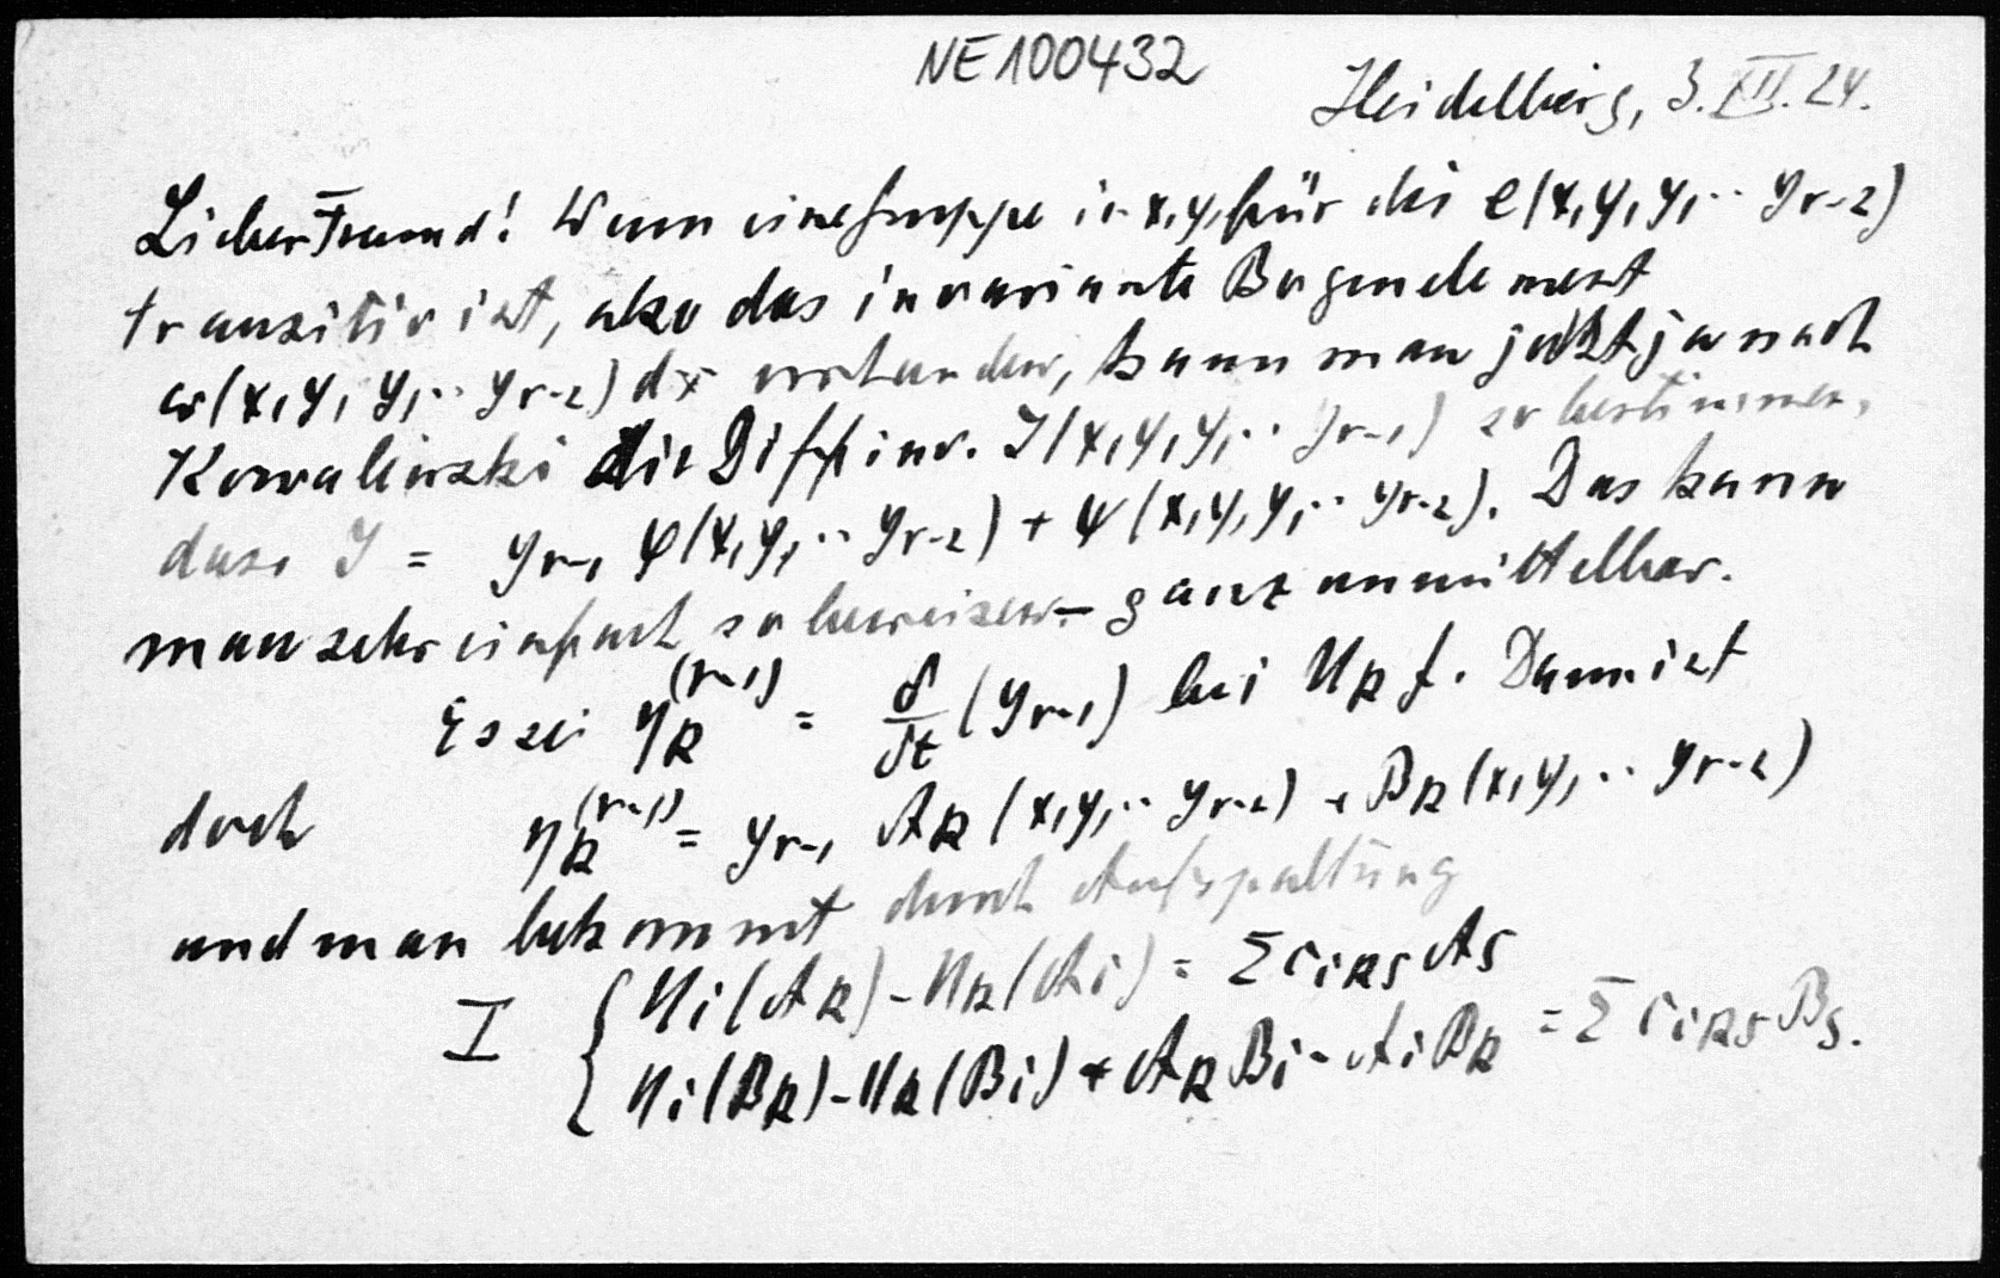 NE100432
Heidelberg, 3. XII. 24.
Lieber Freund! Wenn eine Gruppe in x, y, für die e(x, y, y₁ ·· yᵣ₋₂)
transitiv ist, also das invariante Bogenelement
ω(x, y, y₁ ·· yᵣ₋₂) dx vorhanden, kann man jetzt ja nach
Kowalewski die Diffinv. J(x, y, y₁ ·· yᵣ₋₁) so bestimmen,
dass J = yᵣ₋₁ φ(x, y, ·· yᵣ₋₂) + ψ(x, y, y₁ ·· yᵣ₋₂). Das kann
man sehr einfach so beweisen – ganz unmittelbar.
Es sei η_k^(r-1) = δ/δt (yᵣ₋₁) bei U_k f. Dann ist
doch η_k^(r-1) = yᵣ₋₁ A_k (x, y, ·· yᵣ₋₂) + B_k (x, y, ·· yᵣ₋₂)
und man bekommt durch Aufspaltung
I { U_i(A_k) - U_k(A_i) = Σ c_iks A_s
U_i(B_k) - U_k(B_i) + A_k B_i - A_i B_k = Σ c_iks B_s.